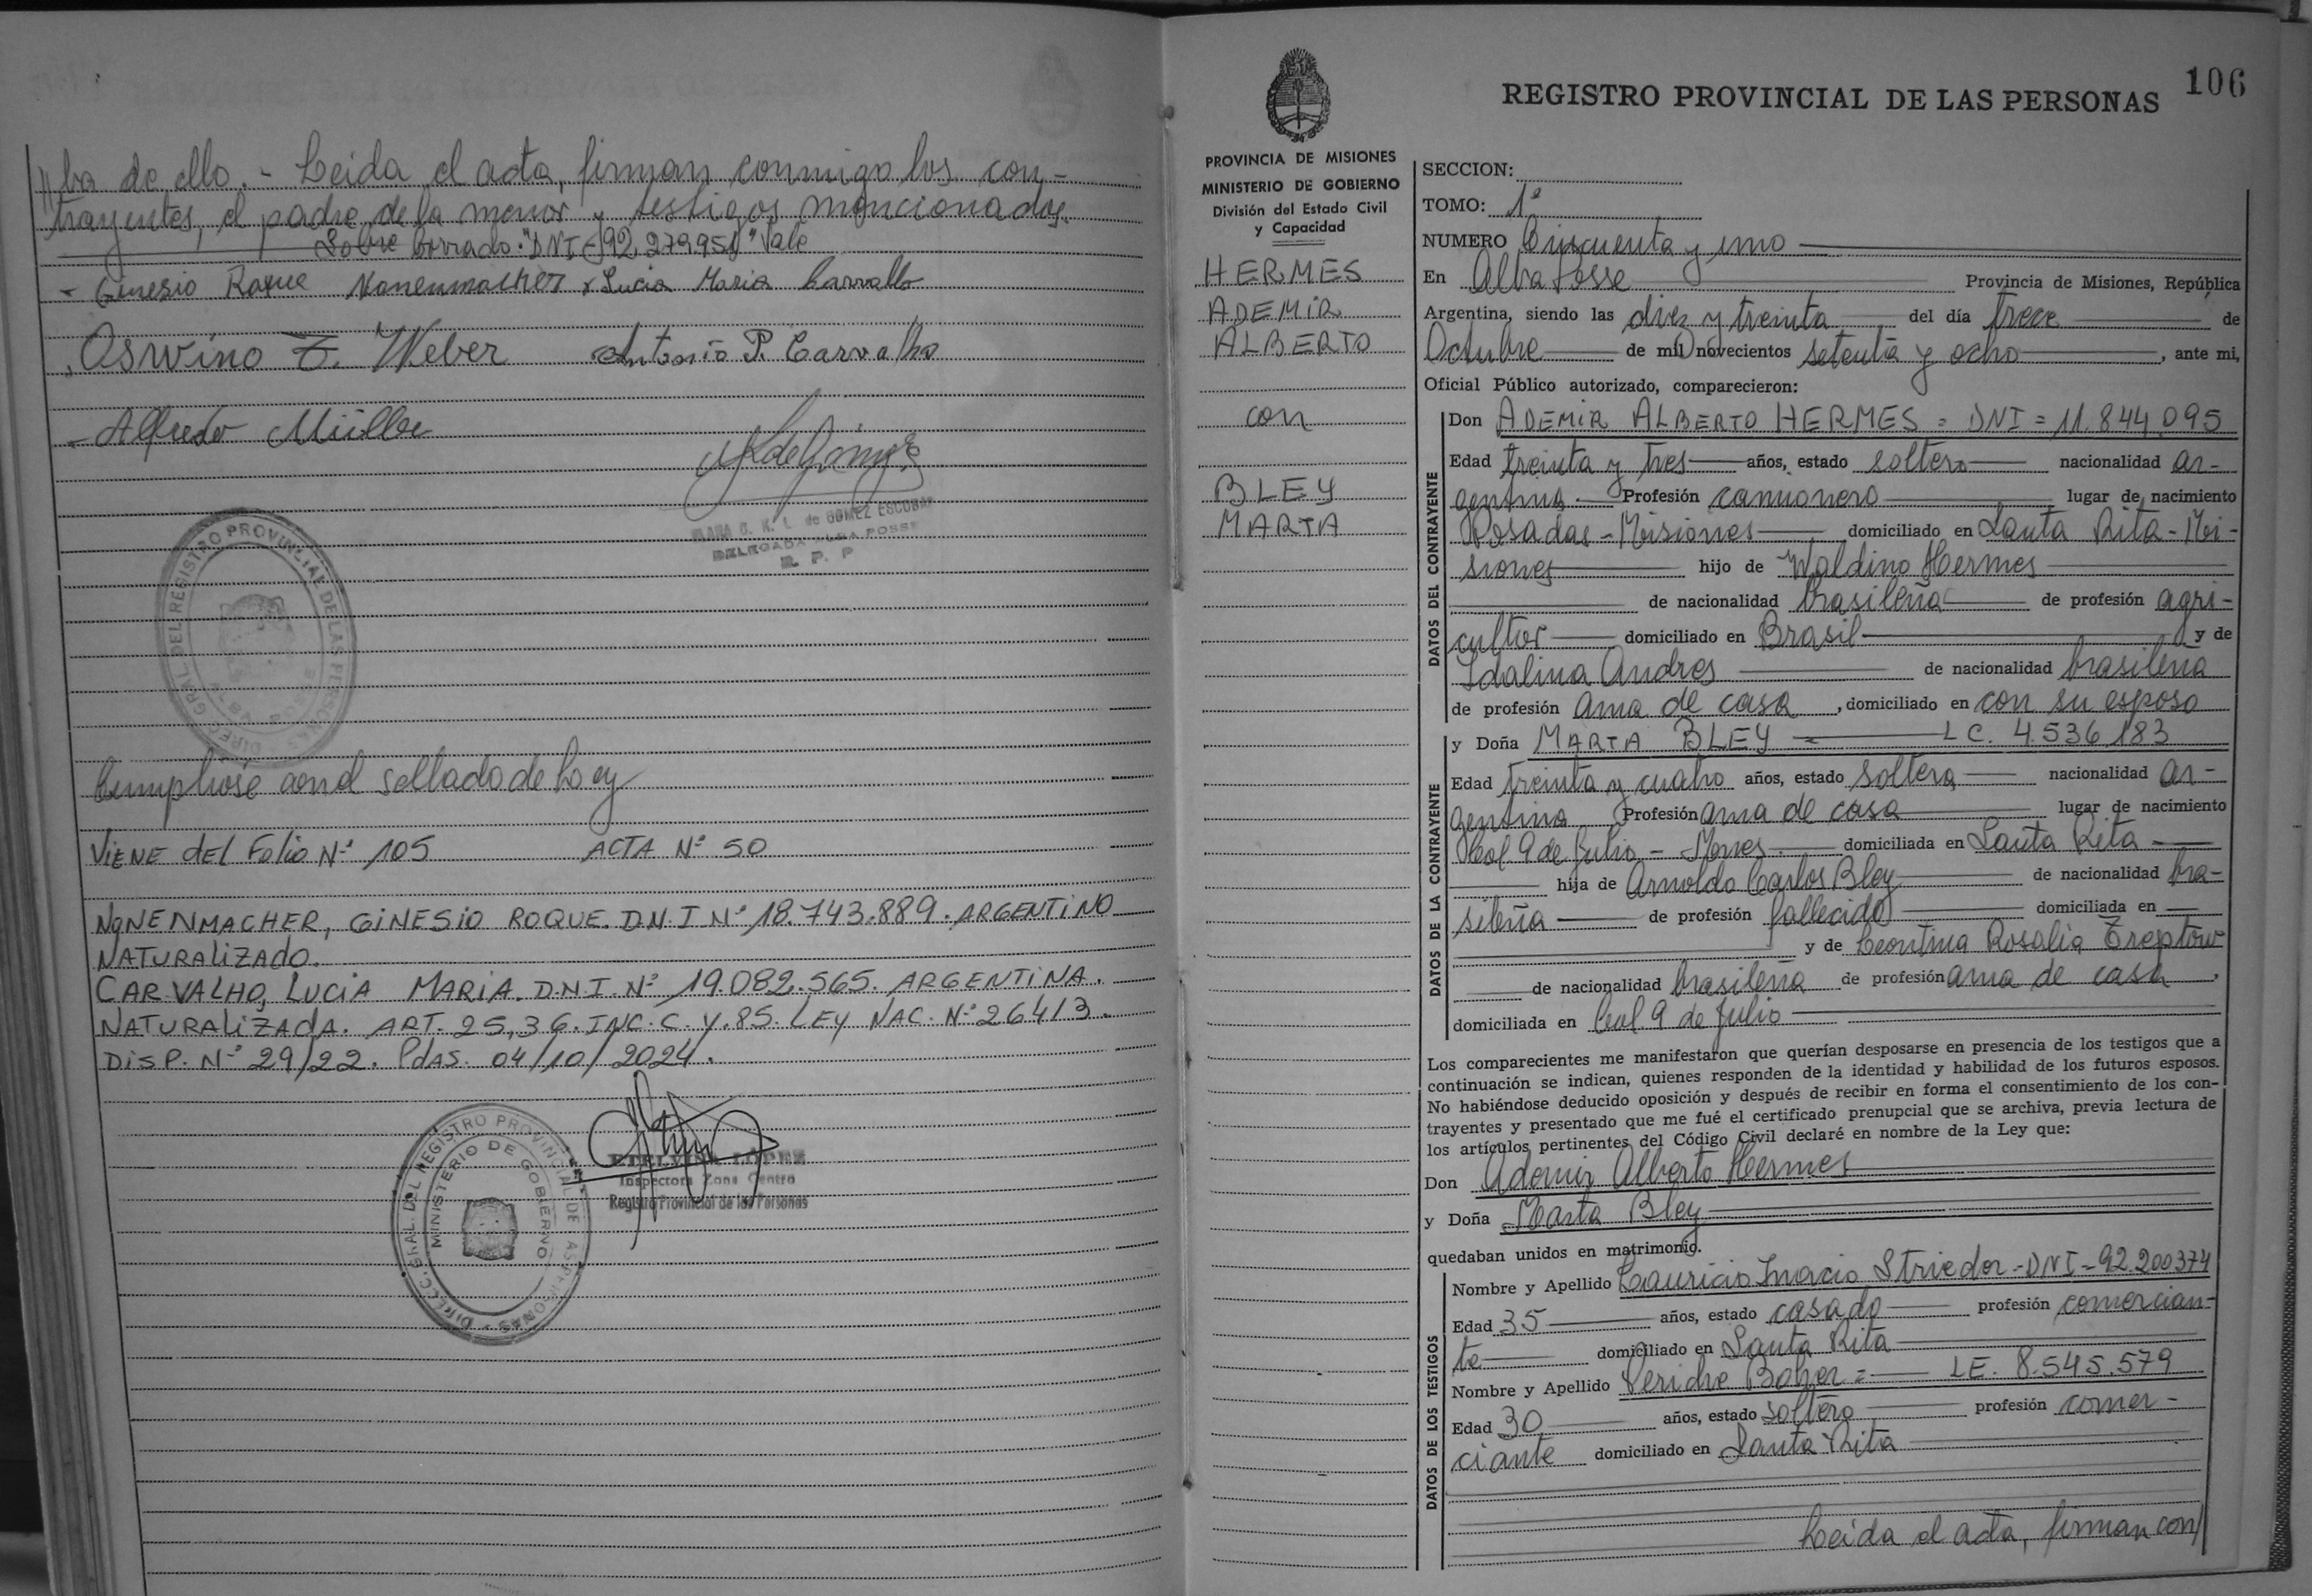 //ba de ello.- Leida el acta, firman conmigo los con-
trayentes, el padre de la menor y testigos mencionados.
Sobre borrado: "DNI-92.279951" Vale
- Ginesio Roque Nonenmacher x Lucia Maria Carvallo
Osvino E. Weber Antonio P. Carvalho
- Alfredo Müller
de GOMEZ ESCOBAR
DELEGADA ALBA POSSE
R. P. P.
DIREC. GRAL. DEL REGISTRO PROVINCIAL DE LAS PERSONAS
Cumpliose con el sellado de ley
ViENE DEL Folio Nº 105 ACTA Nº 50
NONENMACHER, GINESIO ROQUE. D.N.I Nº 18.743.889. ARGENTINO
NATURALIZADO.
CARVALHO, LUCIA MARIA. D.N.I. Nº 19.082.565. ARGENTINA.
NATURALIZADA. ART. 25,36. INC. C. Y. 85. LEY NAC. Nº 26413.
DISP. Nº 29/22. Pdas. 04/10/2024.
ETELVINA LOPEZ
Inspectora Zona Centro
Registro Provincial de las Personas
DIREC. GRAL. DEL REGISTRO PROVINCIAL DE LAS PERSONAS
MINISTERIO DE GOBIERNO
106
REGISTRO PROVINCIAL DE LAS PERSONAS
PROVINCIA DE MISIONES
MINISTERIO DE GOBIERNO
División del Estado Civil
y Capacidad
HERMES
ADEMIR
ALBERTO
con
BLEY
MARTA
SECCION:
TOMO: 1º
NUMERO Cincuenta y uno
En Alba Posse Provincia de Misiones, República
Argentina, siendo las diez y treinta del día trece de
Octubre de mil novecientos setenta y ocho, ante mi,
Oficial Público autorizado, comparecieron:
DATOS DEL CONTRAYENTE
Don ADEMIR ALBERTO HERMES = DNI = 11.844.095
Edad treinta y tres años, estado soltero nacionalidad ar-
gentina Profesión camionero lugar de nacimiento
Posadas - Misiones domiciliado en Santa Rita - Mi-
siones hijo de Waldino Hermes
de nacionalidad brasileña de profesión agri-
cultor domiciliado en Brasil y de
Idalina Andres de nacionalidad brasileña
de profesión ama de casa, domiciliado en con su esposo
DATOS DE LA CONTRAYENTE
y Doña MARTA BLEY = LC. 4.536.183
Edad treinta y cuatro años, estado soltera nacionalidad ar-
gentina Profesión ama de casa lugar de nacimiento
Col. 9 de Julio - Mnes. domiciliada en Santa Rita
hija de Arnoldo Carlos Bley de nacionalidad bra-
sileña de profesión fallecido domiciliada en
y de Leontina Rosalia Treptow
de nacionalidad brasileña de profesión ama de casa,
domiciliada en Col. 9 de Julio
Los comparecientes me manifestaron que querían desposarse en presencia de los testigos que a
continuación se indican, quienes responden de la identidad y habilidad de los futuros esposos.
No habiéndose deducido oposición y después de recibir en forma el consentimiento de los con-
trayentes y presentado que me fué el certificado prenupcial que se archiva, previa lectura de
los artículos pertinentes del Código Civil declaré en nombre de la Ley que:
Don Ademir Alberto Hermes
y Doña Marta Bley
quedaban unidos en matrimonio.
DATOS DE LOS TESTIGOS
Nombre y Apellido Lauricio Inacio Strieder - DNI - 92.200374
Edad 35 años, estado casado profesión comercian-
te domiciliado en Santa Rita
Nombre y Apellido = LE. 8.545.579
Edad 30 años, estado soltero profesión comer-
ciante domiciliado en Santa Rita
Leida el acta, firman con//